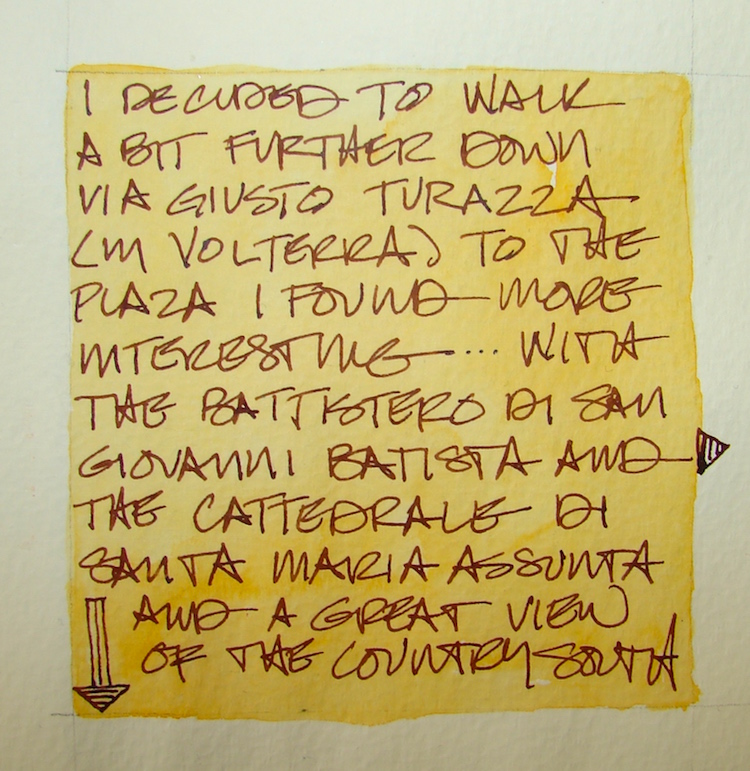 I DECIDED TO WALK
A BIT FURTHER DOWN
VIA GIUSTO TURAZZA
(IN VOLTERRA) TO THE
PLAZA I FOUND MORE
INTERESTING .... WITH
THE BATTISTERO DI SAN
GIOVANNI BATISTA AND
THE CATTEDRALE DI
SANTA MARIA ASSUNTA
AND A GREAT VIEW
OF THE COUNTRY SOUTH